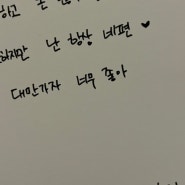 하지만 난 항상 네편 ♥
대만가자 너무 좋아